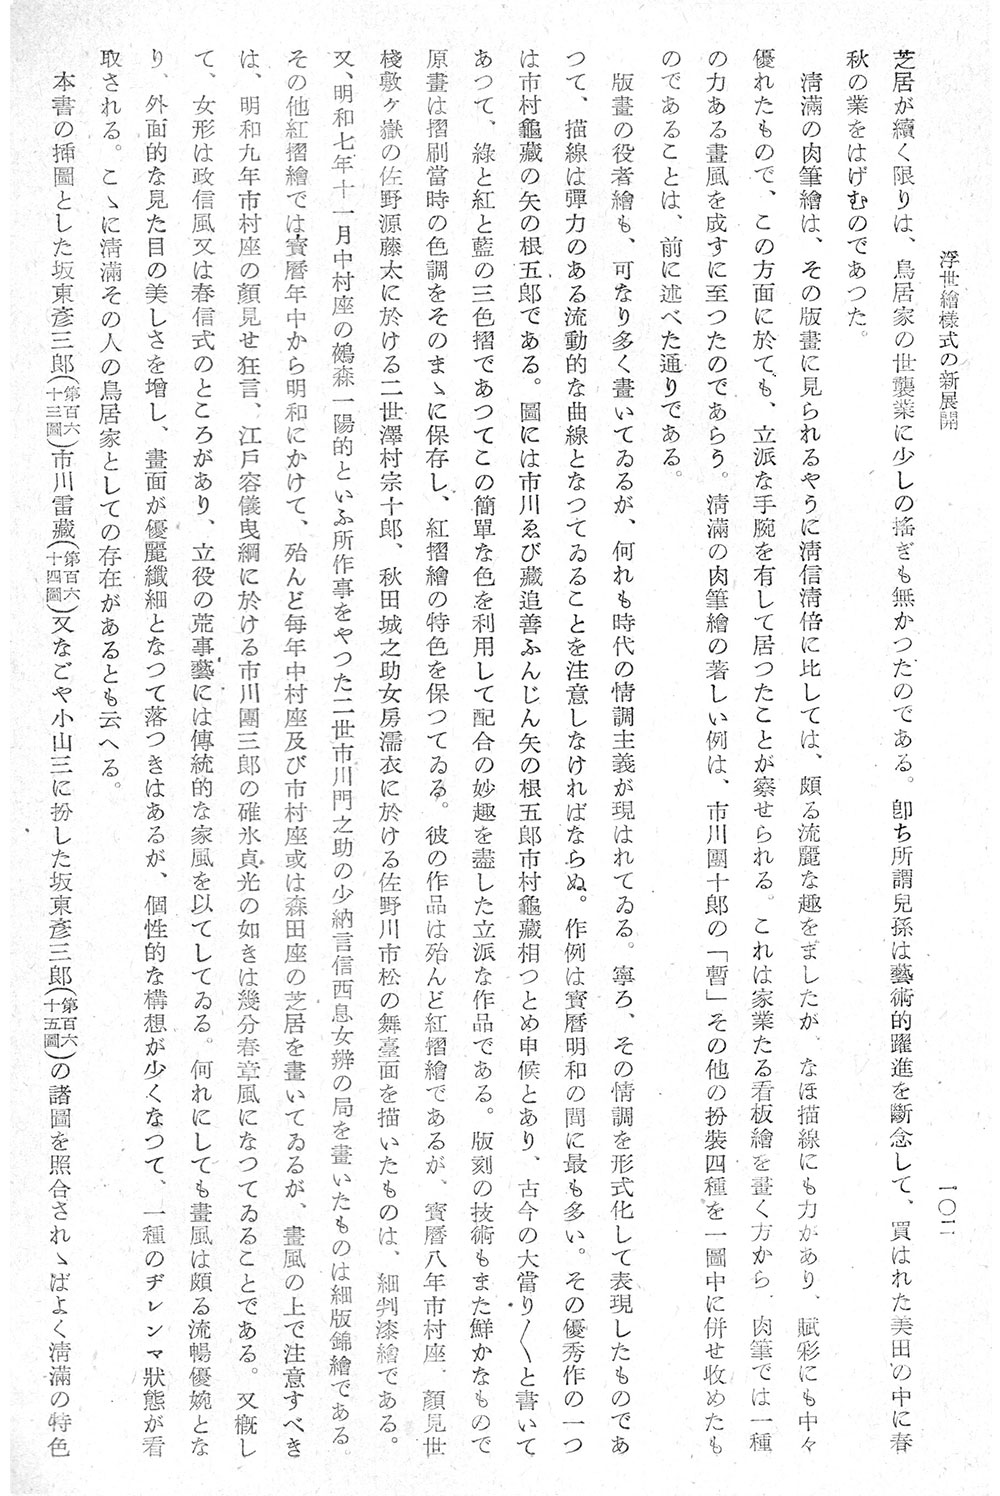 浮世繪樣式の新展開
一〇二
芝居が續く限りは、鳥居家の世襲業に少しの搖ぎも無かつたのである。卽ち所謂兒孫は藝術的躍進を斷念して、買はれた美田の中に春
秋の業をはげむのであつた。
淸滿の肉筆繪は、その版畫に見られるやうに淸信淸倍に比しては、頗る流麗な趣をましたが、なほ描線にも力があり、賦彩にも中々
優れたもので、この方面に於ても、立派な手腕を有して居つたことが察せられる。これは家業たる看板繪を畫く方から、肉筆では一種
の力ある畫風を成すに至つたのであらう。淸滿の肉筆繪の著しい例は、市川團十郞の「暫」その他の扮裝四種を一圖中に併せ收めたも
のであることは、前に述べた通りである。
版畫の役者繪も、可なり多く畫いてゐるが、何れも時代の情調主義が現はれてゐる。寧ろ、その情調を形式化して表現したものであ
つて、描線は彈力のある流動的な曲線となつてゐることを注意しなければならぬ。作例は寶曆明和の間に最も多い。その優秀作の一つ
は市村龜藏の矢の根五郞である。圖には市川ゑび藏追善ふんじん矢の根五郞市村龜藏相つとめ申候とあり、古今の大當り〱と書いて
あつて、綠と紅と藍の三色摺であつてこの簡單な色を利用して配合の妙趣を盡した立派な作品である。版刻の技術もまた鮮かなもので
原畫は摺刷當時の色調をそのまゝに保存し、紅摺繪の特色を保つてゐる。彼の作品は殆んど紅摺繪であるが、寶曆八年市村座、顏見世
棧敷ヶ嶽の佐野源藤太に於ける二世澤村宗十郞、秋田城之助女房濡衣に於ける佐野川市松の舞臺面を描いたものは、細判漆繪である。
又、明和七年十一月中村座の鵺森一陽的といふ所作事をやつた二世市川門之助の少納言信西息女辨の局を畫いたものは細版錦繪である
その他紅摺繪では寶曆年中から明和にかけて、殆んど每年中村座及び市村座或は森田座の芝居を畫いてゐるが、畫風の上で注意すべき
は、明和九年市村座の顏見せ狂言、江戶容儀曳綱に於ける市川團三郞の碓氷貞光の如きは幾分春章風になつてゐることである。又槪し
て、女形は政信風又は春信式のところがあり、立役の荒事藝には傳統的な家風を以てしてゐる。何れにしても畫風は頗る流暢優婉とな
り、外面的な見た目の美しさを增し、畫面が優麗纖細となつて落つきはあるが、個性的な構想が少くなつて、一種のヂレンマ狀態が看
取される。こゝに淸滿その人の鳥居家としての存在があるとも云へる。
本書の揷圖とした坂東彥三郞(第百六十三圖)市川雷藏(第百六十四圖)又なごや小山三に扮した坂東彥三郞(第百六十五圖)の諸圖を照合されゝばよく淸滿の特色